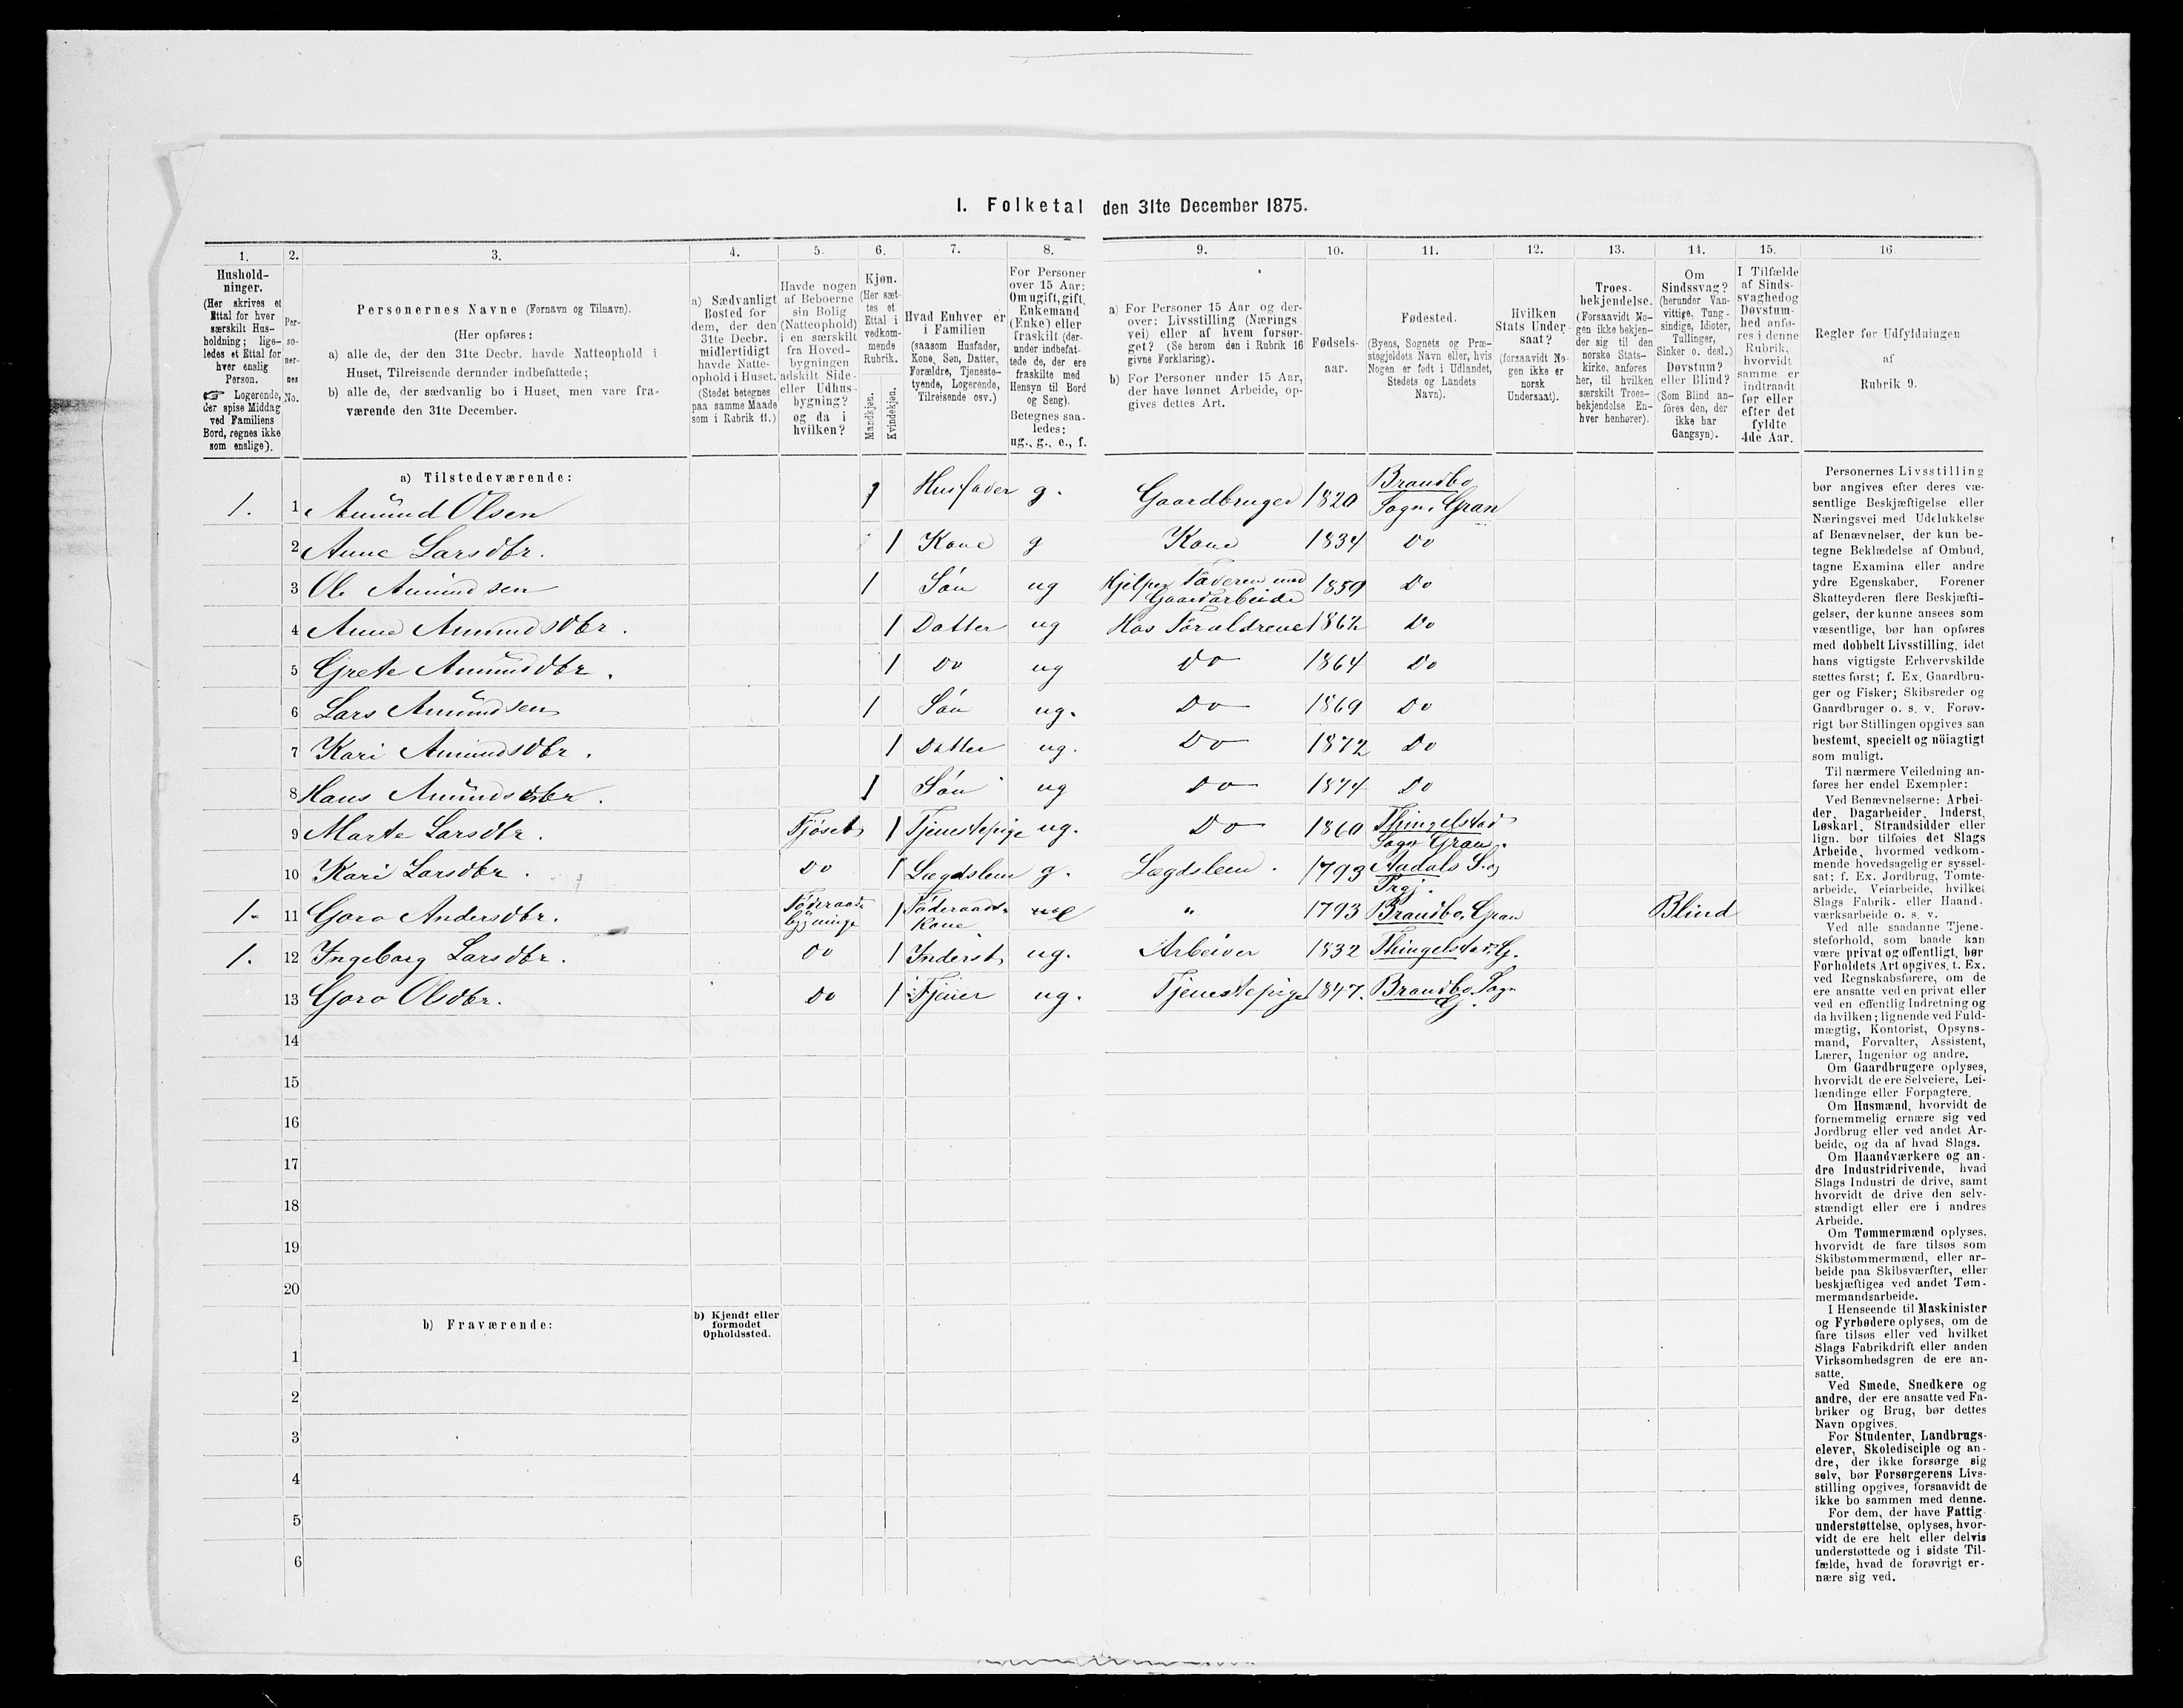 I. Folketal den 31te December 1875.
1. 2. 3. 4. 5. 6. 7. 8. 9. 10. 11. 12. 13. 14. 15. 16.
Hushold-
ninger.
(Her skrives et
Ettal for hver
særskilt Hus-
holdning; lige-
ledes et Ettal for
hver enslig
Person.
☞ Logerende,
der spise Middag
ved Familiens
Bord, regnes ikke
som enslige).
Per-
so-
ner-
nes
No.
Personernes Navne (Fornavn og Tilnavn).
(Her opføres:
a) alle de, der den 31te Decbr. havde Natteophold i
Huset, Tilreisende derunder indbefattede;
b) alle de, der sædvanlig bo i Huset, men vare fra-
værende den 31te December.
a) Sædvanligt
Bosted for
dem, der den
31te Decbr.
midlertidigt
havde Natte-
ophold i Huset.
(Stedet betegnes
paa samme Maade
som i Rubrik 11.)
Havde nogen
af Beboerne
sin Bolig
(Natteophold)
i en særskilt
fra Hoved-
bygningen
adskilt Side-
eller Udhus-
bygning?
og da i
hvilken?
Kjøn.
(Her sæt-
tes et
Ettal i
vedkom-
mende
Rubrik.
Mandkjøn.
Kvindekjøn.
Hvad Enhver er
i Familien
(saasom Husfader,
Kone, Søn, Datter,
Forældre, Tjeneste-
tyende, Logerende,
Tilreisende osv.)
For Personer
over 15 Aar:
Om ugift, gift,
Enkemand
(Enke) eller
fraskilt (der-
under indbefat-
tede de, der ere
fraskilte med
Hensyn til Bord
og Seng).
Betegnes saa-
ledes:
ug., g., e., f.
a) For Personer 15 Aar og der-
over: Livsstilling (Nærings
vei) eller af hvem forsør-
get? (Se herom den i Rubrik 16
givne Forklaring).
b) For Personer under 15 Aar,
der have lønnet Arbeide, op-
gives dettes Art.
Fødsels-
aar.
Fødested.
(Byens, Sognets og Præ-
stegjeldets Navn eller, hvis
Nogen er født i Udlandet,
Stedets og Landets
Navn).
Hvilken
Stats Under-
saat?
(forsaavidt No-
gen ikke er
norsk
Undersaat).
Troes-
bekjendelse.
(Forsaavidt No-
gen ikke bekjen-
der sig til den
norske Stats-
kirke, anføres
her, til hvilken
særskilt Troes-
bekjendelse En-
hver henhører).
Om
Sindssvag?
(herunder Van-
vittige, Tung-
sindige, Idioter,
Tullinger,
Sinker o. desl.)
Døvstum?
eller Blind?
(Som Blind an-
føres den, der
ikke har
Gangsyn).
I Tilfælde
af Sinds-
svaghed og
Døvstum-
hed anfø-
res i denne
Rubrik,
hvorvidt
samme er
indtraadt
før eller
efter det
fyldte
4de Aar.
Regler for Udfyldningen
af
Rubrik 9.
a) Tilstedeværende:
1. 1 Amund Olsen 1 Husfader g. Gaardbruger 1820 Brandbo Sogn, Gran
2 Anne Larsdtr. 1 Kone g Kone 1834 Do
3 Ole Amundsen 1 Søn ug Hjelper Faderen med Gaardarbeide 1859 Do
4 Anne Amundsdtr. 1 Datter ug Hos Forældrene 1862 Do
5 Grete Amundsdtr. 1 Do ug Do 1864 Do
6 Lars Amundsen 1 Søn ug. Do 1869 Do
7 Kari Amundsdtr. 1 Datter ug. Do 1872 Do
8 Hans Amundsdtr. 1 Søn ug Do 1874 Do
9 Marte Larsdtr. Fjøset 1 Tjenestepige ug. Do 1860 Thingelstad Sogn Gran.
10 Kari Larsdtr. Do 1 Lægdslem g. Lægdslem. 1793 Aadals S. og Prgj.
1. 11 Goro Andersdtr. Føderaads bygninge 1 Føderaads Kone e " 1793 Brandbo, Gran Blind
1. 12 Ingeborg Larsdtr. Do 1 Inderst ug. Arbeider 1832 Thingelstad, G.
13 Goro Olsdtr. Do 1 Tjener ug. Tjenestepige 1847. Brandbo Sogn G.
14
15
16
17
18
19
20
b) Fraværende:
b) Kjendt eller
formodet
Opholdssted.
1
2
3
4
5
6
Personernes Livsstilling
bør angives efter deres væ-
sentlige Beskjæftigelse eller
Næringsvei med Udelukkelse
af Benævnelser, der kun be-
tegne Beklædelse af Ombud,
tagne Examina eller andre
ydre Egenskaber. Forener
Skatteyderen flere Beskjæfti-
gelser, der kunne ansees som
væsentlige, bør han opføres
med dobbelt Livsstilling, idet
hans vigtigste Erhvervskilde
sættes først; f. Ex. Gaardbru-
ger og Fisker; Skibsreder og
Gaardbruger o. s. v. Forøv-
rigt bør Stillingen opgives saa
bestemt, specielt og nöiagtigt
som muligt.
Til nærmere Veiledning an-
føres her endel Exempler:
Ved Benævnelserne: Arbei-
der, Dagarbeider, Inderst,
Løskarl, Strandsidder eller
lign. bør tilføies det Slags
Arbeide, hvormed vedkom-
mende hovedsagelig er syssel-
sat; f. Ex. Jordbrug, Tomte-
arbeide, Veiarbeide, hvilket
Slags Fabrik- eller Haand-
værksarbeide o. s. v.
Ved alle saadanne Tjene-
steforhold, som baade kan
være privat og offentligt, bør
Forholdets Art opgives, t. Ex.
ved Regnskabsførere, om de
ere ansatte ved en privat eller
ved en offentlig Indretning og
da hvilken; lignende ved Fuld-
mægtig, Kontorist, Opsyns-
mand, Forvalter, Assistent,
Lærer, Ingeniør og andre.
Om Gaardbrugere oplyses,
hvorvidt de ere Selveiere, Lei-
lændinge eller Forpagtere.
Om Husmænd, hvorvidt de
fornemmelig ernære sig ved
Jordbrug eller ved andet Ar-
beide, og da af hvad Slags.
Om Haandværkere og an-
dre Industridrivende, hvad
Slags Industri de drive, samt
hvorvidt de drive den selv-
stændigt eller ere i andres
Arbeide.
Om Tømmermænd oplyses,
hvorvidt de fare tilsøs som
Skibstømmermænd, eller ar-
beide paa Skibsværfter, eller
beskjæftiges ved andet Tøm-
mermandsarbeide.
I Henseende til Maskinister
og Fyrbødere oplyses, om de
fare tilsøs eller ved hvilket
Slags Fabrikdrift eller anden
Virksomhedsgren de ere an-
satte.
Ved Smede, Snedkere og
andre, der ere ansatte ved Fa-
briker og Brug, bør dettes
Navn opgives.
For Studenter, Landbrugs-
elever, Skoledisciple og an-
dre, der ikke forsørge sig
selv, bør Forsørgerens Livs-
stilling opgives, forsaavidt de
ikke bo sammen med denne.
For dem, der have Fattig-
understøttelse, oplyses, hvor-
vidt de ere helt eller delvis
understøttede og i sidste Til-
fælde, hvad de forøvrigt er-
nære sig ved.